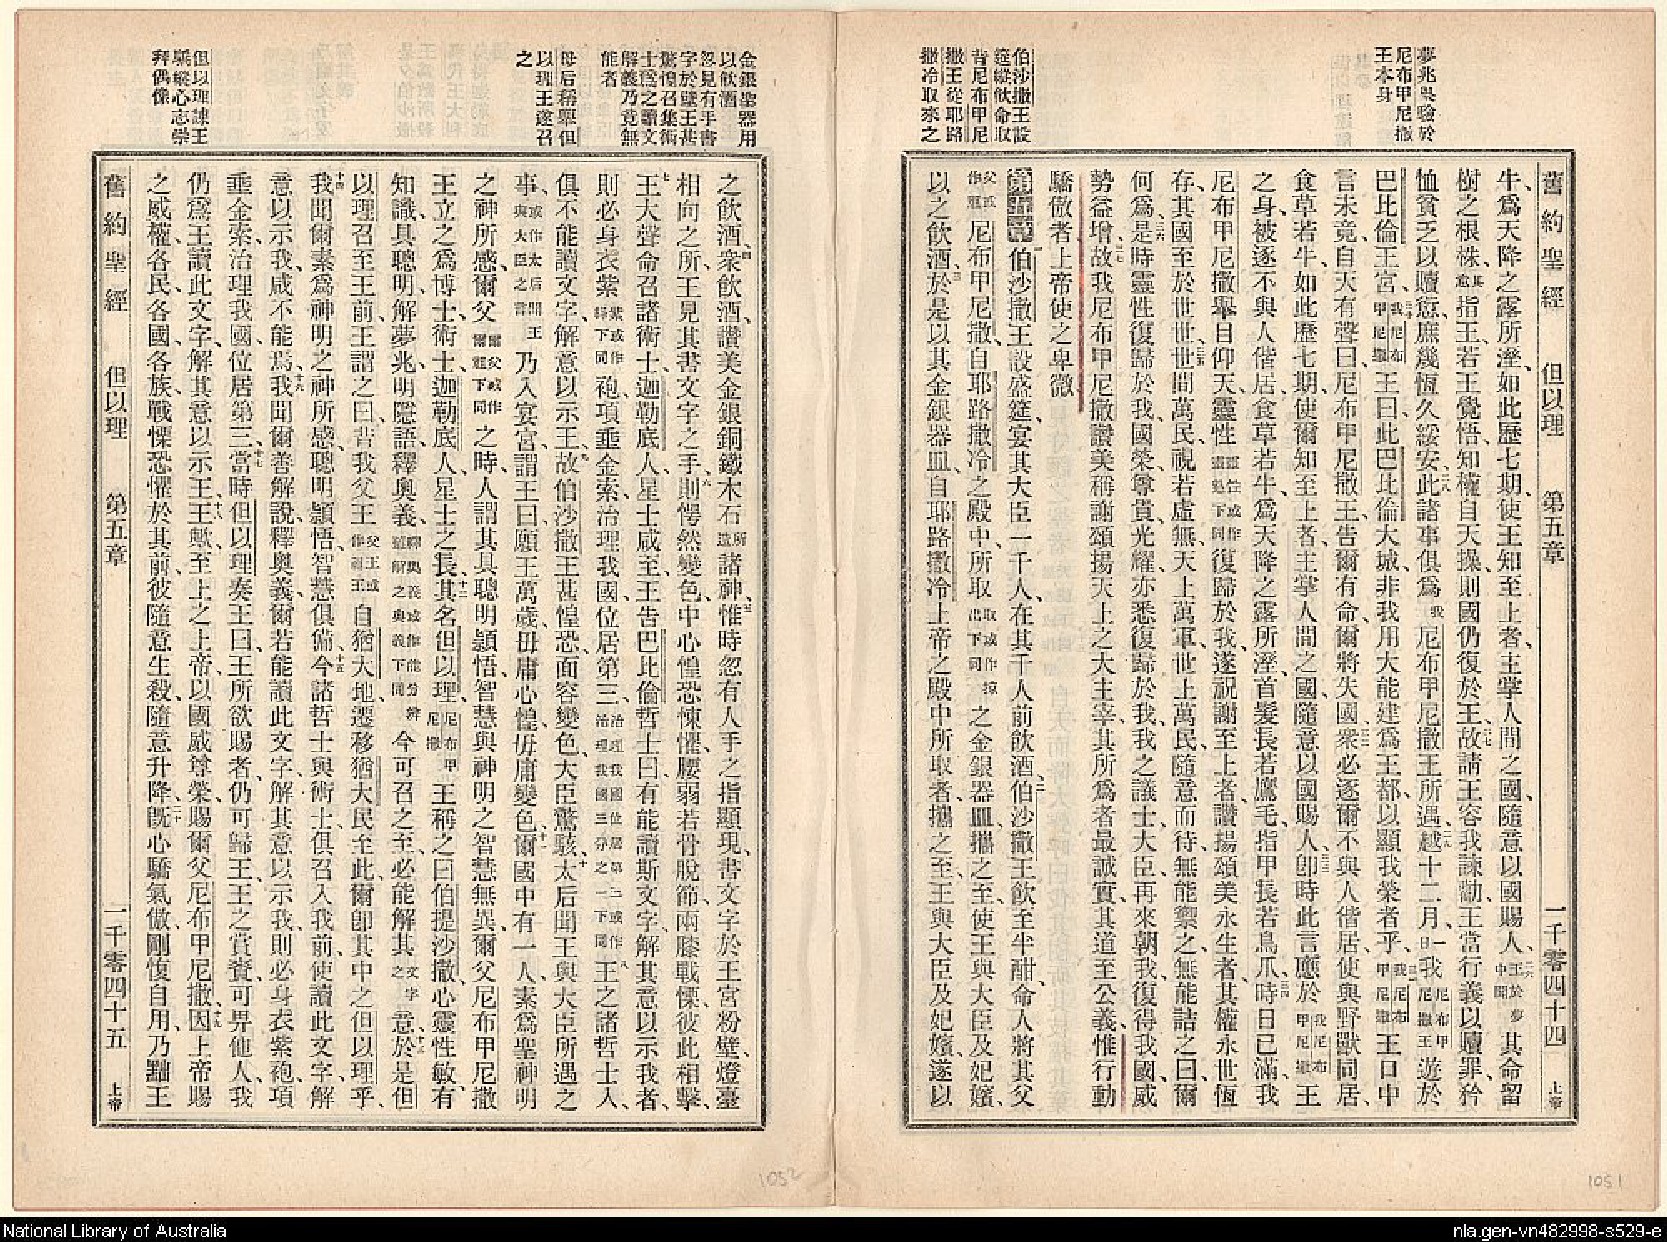 夢兆果驗於
尼布甲尼撒
王本身
伯沙撒王設
筵縱飲命取
昔尼布甲尼
撒王從耶路
撒冷取來之
舊約聖經 但以理 第五章 一千零四十四 上帝
牛、爲天降之露所溼、如此歷七期、使王知至上者、主掌人間之國、隨意以國賜人、二六王於夢中聞其命留
樹之根株、其意指王若王覺悟、知權自天操、則國仍復於王、二七故請王容我諫勸、王當行義以贖罪、矜
恤貧乏以贖愆、庶幾恆久綏安、二八此諸事俱爲我尼布甲尼撒王所遇、二九越十二月、一日我尼布甲尼撒王遊於
巴比倫王宮、三十我尼布甲尼撒王曰、此巴比倫大城、非我用大能建爲王都、以顯我榮者乎、三一我尼布甲尼撒王口中
言未竟、自天有聲曰、尼布甲尼撒王、告爾有命、爾將失國、三二衆必逐爾、不與人偕居、使與野獸同居、
食草若牛、如此歷七期、使爾知至上者、主掌人間之國、隨意以國賜人、三三卽時此言應於我尼布甲尼撒王
之身、被逐不與人偕居、食草若牛、爲天降之露所溼、首髮長若鷹毛、指甲長若鳥爪、三四時日已滿、我
尼布甲尼撒舉目仰天、靈性靈性或作聰慧下同復歸於我、遂祝謝至上者、讚揚頌美永生者、其權永世恆
存、其國至於世世、三五世間萬民、視若虛無、天上萬軍、世上萬民、隨意而待、無能禦之、無能詰之曰、爾
何爲、三六是時靈性復歸於我、國榮尊貴光耀、亦悉復歸於我、我之議士大臣、再來朝我、復得我國、威
勢益增、三七故我尼布甲尼撒讚美稱謝頌揚天上之大主宰、其所爲者、最誠實、其道至公義、惟行動
驕傲者、上帝使之卑微、
第五章 一伯沙撒王設盛筵、宴其大臣一千人、在其千人前飲酒、二伯沙撒王飲至半酣、命人將其父
父或作祖尼布甲尼撒、自耶路撒冷之殿中所取取或作掠出下同之金銀器皿攜之至、使王與大臣及妃嬪、
以之飲酒、三於是以其金銀器皿、自耶路撒冷上帝之殿中所取者、攜之至、王與大臣及妃嬪、遂以
金銀聖器用
以飲酒
忽見有手書
字於壁王甚
驚惶召集術
士爲之讀文
解義乃竟無
能者
母后稱舉但
以理王遂召
之
但以理諫王
驕縱心志崇
拜偶像
之飲酒、四衆飲酒、讚美金銀銅鐵木石所造諸神、五惟時忽有人手之指顯現、書文字於王宮粉壁、燈臺
相向之所、王見其書文字之手、六則愕然變色、中心惶恐悚懼、腰弱若骨脫節、兩膝戰慄、彼此相擊、
七王大聲命召諸術士、迦勒底人、星士咸至、王告巴比倫哲士曰、有能讀斯文字、解其意以示我者、
則必身衣紫紫或作絳下同袍、項垂金索、治理我國、位居第三、治理我國位居第三或作治理我國三分之一下同八王之諸哲士入、
俱不能讀文字、解意以示王、九故伯沙撒王甚惶恐、面容變色、大臣驚駭、十太后聞王與大臣所遇之
事、或作太后聞王與大臣之言乃入宴宮、謂王曰、願王萬歲、毋庸心惶、毋庸變色、十一爾國中有一人、素爲聖神明
之神所感、爾父爾父或作爾祖下同之時、人謂其具聰明頴悟、智慧與神明之智慧無異、爾父尼布甲尼撒
王立之爲博士術士迦勒底人星士之長、十二其名但以理、尼布甲尼撒王稱之曰伯提沙撒、心靈性敏、有
知識、具聰明、解夢兆、明隱語、釋奧義、釋奧義或作能分辨難解之奧義下同今可召之至、必能解其文字之意、十三於是但
以理召至王前、王謂之曰、昔我父王父王或作祖王自猶大地、遷移猶大民至此、爾卽其中之但以理乎、
十四我聞爾素爲神明之神所感、聰明頴悟智慧俱備、十五今諸哲士與術士、俱召入我前、使讀此文字、解
意以示我、咸不能焉、十六我聞爾善解說、釋奧義、爾若能讀此文字、解其意以示我、則必身衣紫袍、項
垂金索、治理我國、位居第三、十七當時但以理奏王曰、王所欲賜者、仍可歸王、王之賞賚、可畀他人、我
仍爲王讀此文字、解其意以示王、十八王歟、至上之上帝、以國威尊榮賜爾父尼布甲尼撒、十九因上帝賜
之威權、各民各國各族、戰慄恐懼於其前、彼隨意生殺、隨意升降、二十旣心驕氣傲、剛愎自用、乃黜王
舊約聖經 但以理 第五章 一千零四十五 上帝
1052
1051
National Library of Australia
nla.gen-vn482998-s529-e